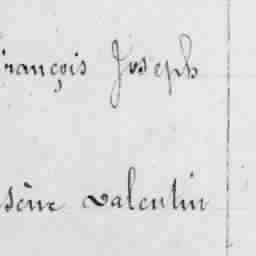 rançois Joseph
sène Valentin